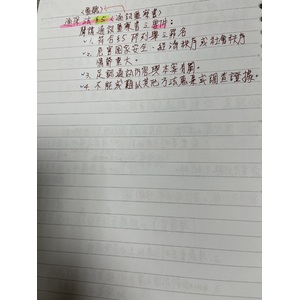 <重點>
通保法§5 (通訊監察書)
聲請通訊監察書之要件:
1. 符合§5 所列舉之罪名
2. 危害國家安全、經濟秩序或社會秩序
情節重大。
3. 足認通訊內容與本案有關。
4. 不能或難以其他方法蒐集或調查證據。